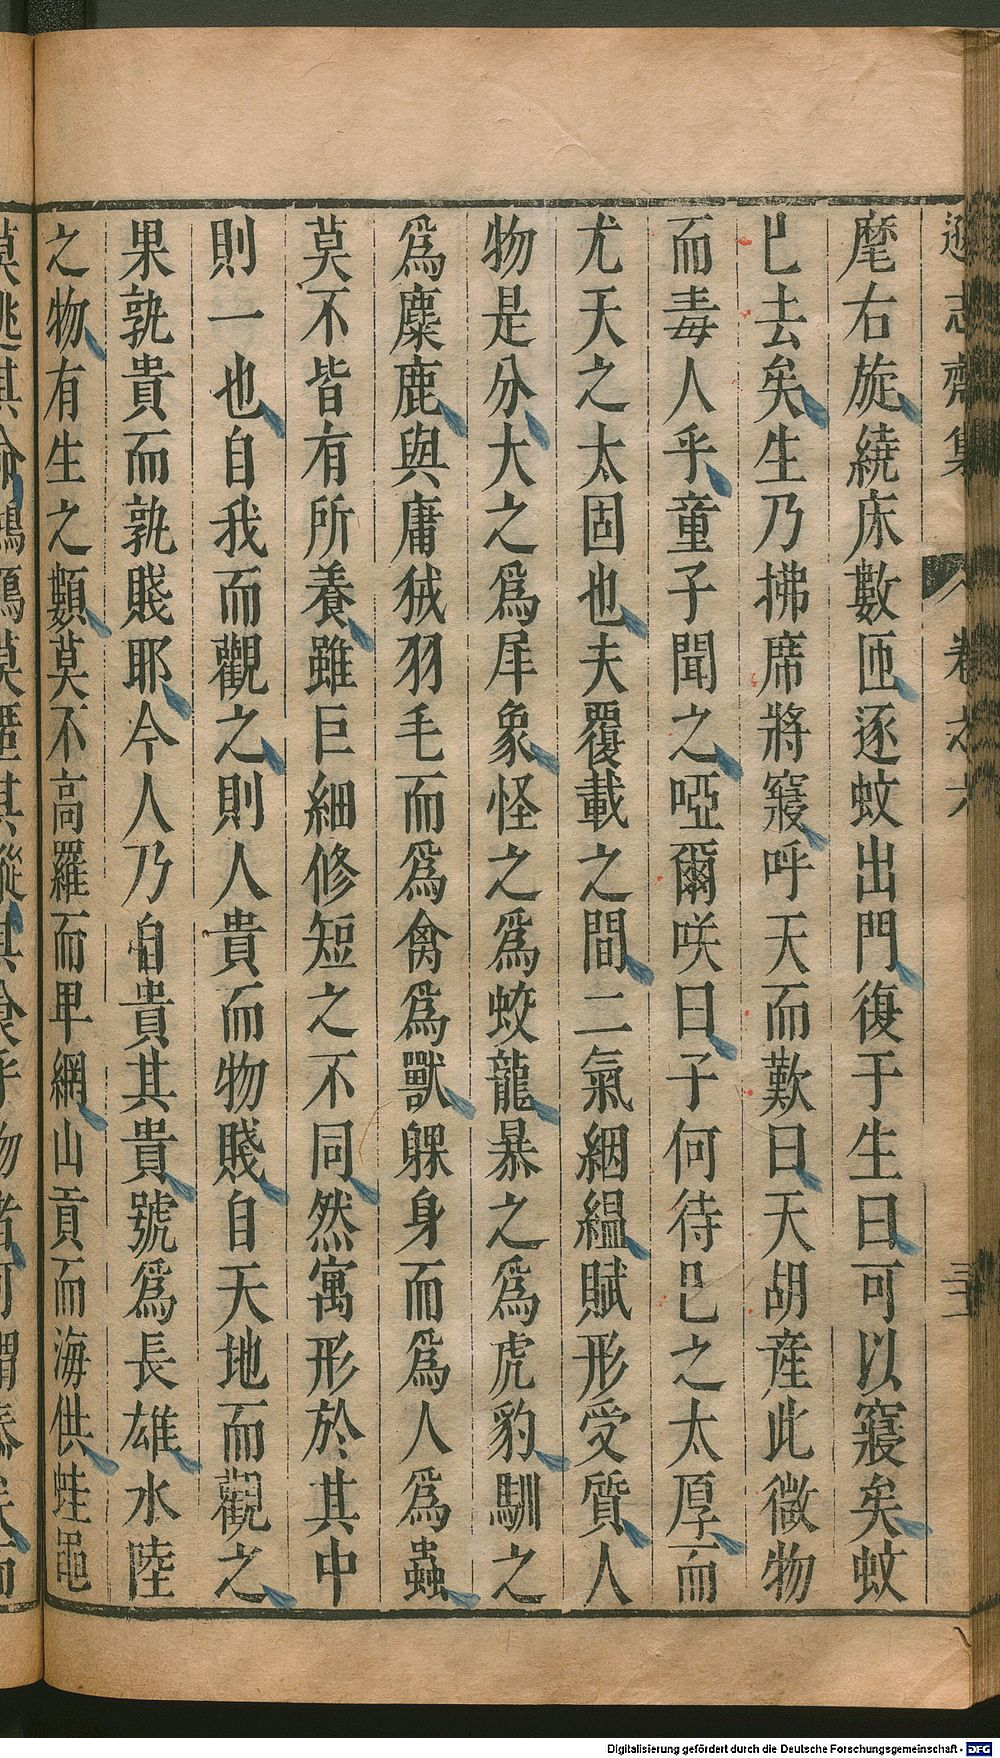 遜志齋集 卷之六 三二
麾右旋繞床數匝逐蚊出門復于生曰可以寢矣蚊
已去矣生乃拂席將寢呼天而歎曰天胡産此微物
而毒人乎童子聞之啞爾咲曰子何待已之太厚而
尤天之太固也夫覆載之間二氣絪緼賦形受質人
物是分大之爲犀象怪之爲蛟龍暴之爲虎豹馴之
爲麋鹿與庸狨羽毛而爲禽爲獸躶身而爲人爲蟲
莫不皆有所養雖巨細修短之不同然寓形於其中
則一也自我而觀之則人貴而物賤自天地而觀之
果孰貴而孰賤耶今人乃自貴其貴號爲長雄水陸
之物有生之類莫不高羅而卑網山貢而海供蛙黽
Digitalisierung gefördert durch die Deutsche Forschungsgemeinschaft - DFG